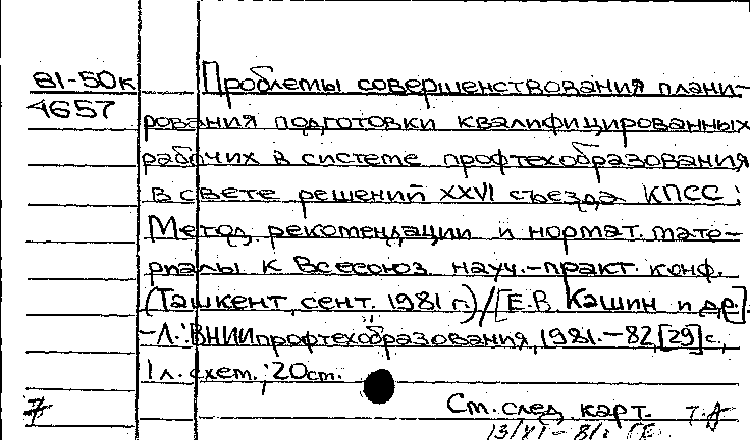 81-50к Проблемы совершенствования плани-
4657 рования подготовки квалифицированных
рабочих в системе профтехобразования
в свете решений XXVI съезда КПСС:
Метод. рекомендации и нормат. мате-
риалы к Всесоюз. науч.-практ. конф.
(Ташкент, сент. 1981 г.)/[Е.В. Кашин и др.].
-Л.: ВНИИпрофтехобразования, 1981.-82,[29] с.,
1 л. схем.; 20 см.
Ст. след. карт.
13/XI-81г.